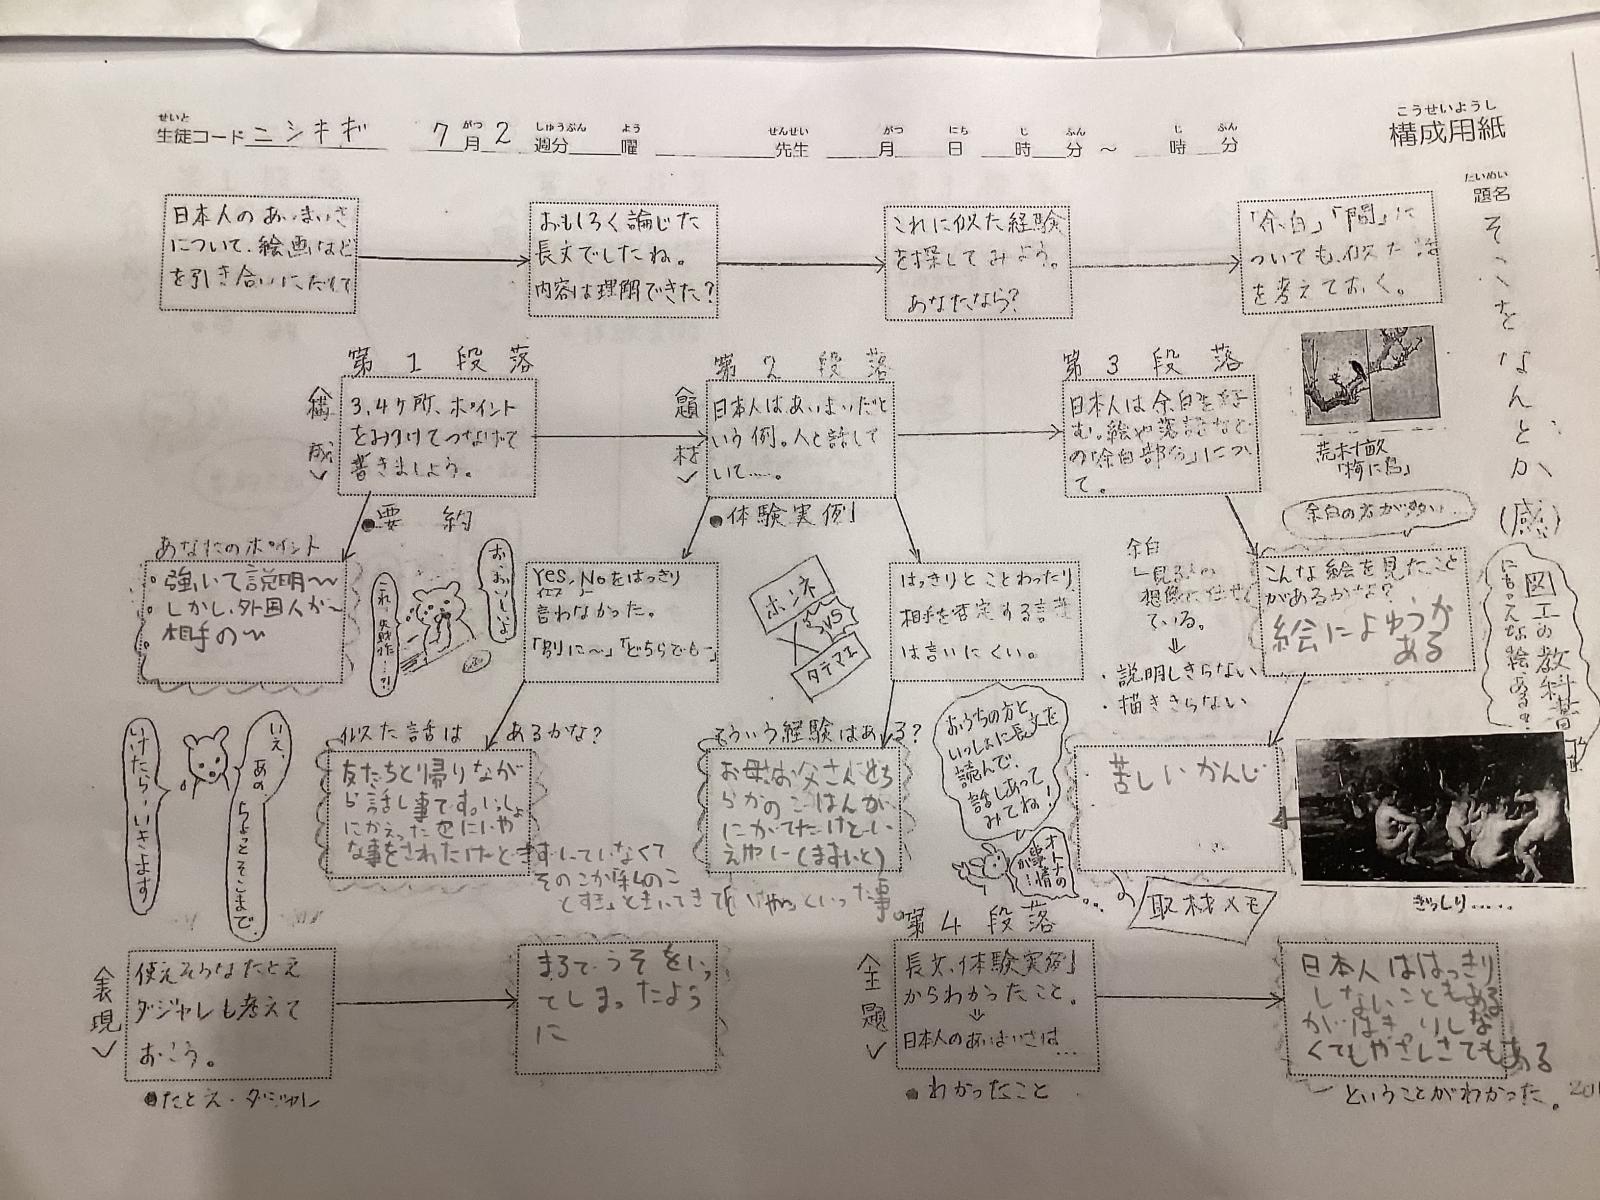 せいと
生徒コード ニシキギ
がつ しゅうぶん よう
7月2 週分 曜
せんせい
先生
がつ にち じ ふん じ ふん
月 日 時 分 〜 時 分
こうせいようし
構成用紙
だいめい
題名
そこをなんとか
(感)
日本人のあいまいさ
について、絵画など
を引き合いにだして
おもしろく論じた
長文でしたね。
内容は理解できた?
これに似た経験
を探してみよう。
あなたなら?
「余白」「間」に
ついても、似た話
を考えておく。
第1段落
〈構成〉
3,4ヶ所、ポイント
をおさえてつなげて
書きましょう。
●要約
第2段落
〈題材〉
日本人はあいまいだと
いう例。人と話して
いて……。
●体験実例
第3段落
日本人は余白を
む。絵や落語など
の「余白部分」につい
て。
荒木十畝
「梅に鳥」
余白の方が多い…
あなたのポイント
強いて説明〜
しかし、外国人が〜
相手の〜
お、おいしいよ
これ、失敗作…?!
Yes,Noをはっきり
イエス ノー
言わなかった。
「別に〜」「どちらでも〜」
ホンネ
VS
タテマエ
はっきりとことわったり
相手を否定する言葉
は言いにくい。
余白
見る人の
想像に任せ
ている。
⇓
・説明しきらない
・描ききらない
こんな絵を見たこと
があるかな?
絵によゆうが
ある
図工の教科書
にもこんな絵ある?
いえ、あの、ちょっとそこまで。
いけたら、いきます
似た話は あるかな?
友だちと帰りなが
ら話し事です。いっしょ
にかえった
な事をされたけどきずしていなくて
そのこが私のこ
とすき」ときいてきて
といった事。
そういう経験はある?
お母お父さんどち
らかのごはんが
にがてだけどい
えやに(まずいと)
おうちの方と
いっしょに長文を
読んで、
話しあって
みてね!
オトナの
事情が!
苦しいかんじ
取材メモ
ぎっしり……
〈表現〉
使えそうなたとえ
ダジャレも考えて
おこう。
●たとえ・ダジャレ
まるでうそをいっ
てしまったよう
に
第4段落
〈主題〉
長文、体験実例
からわかったこと。
⇓
日本人のあいまいさは…
●わかったこと
日本人ははっきり
しないこともある
がはきっりしな
くてもやさしさでもある
ということがわかった。